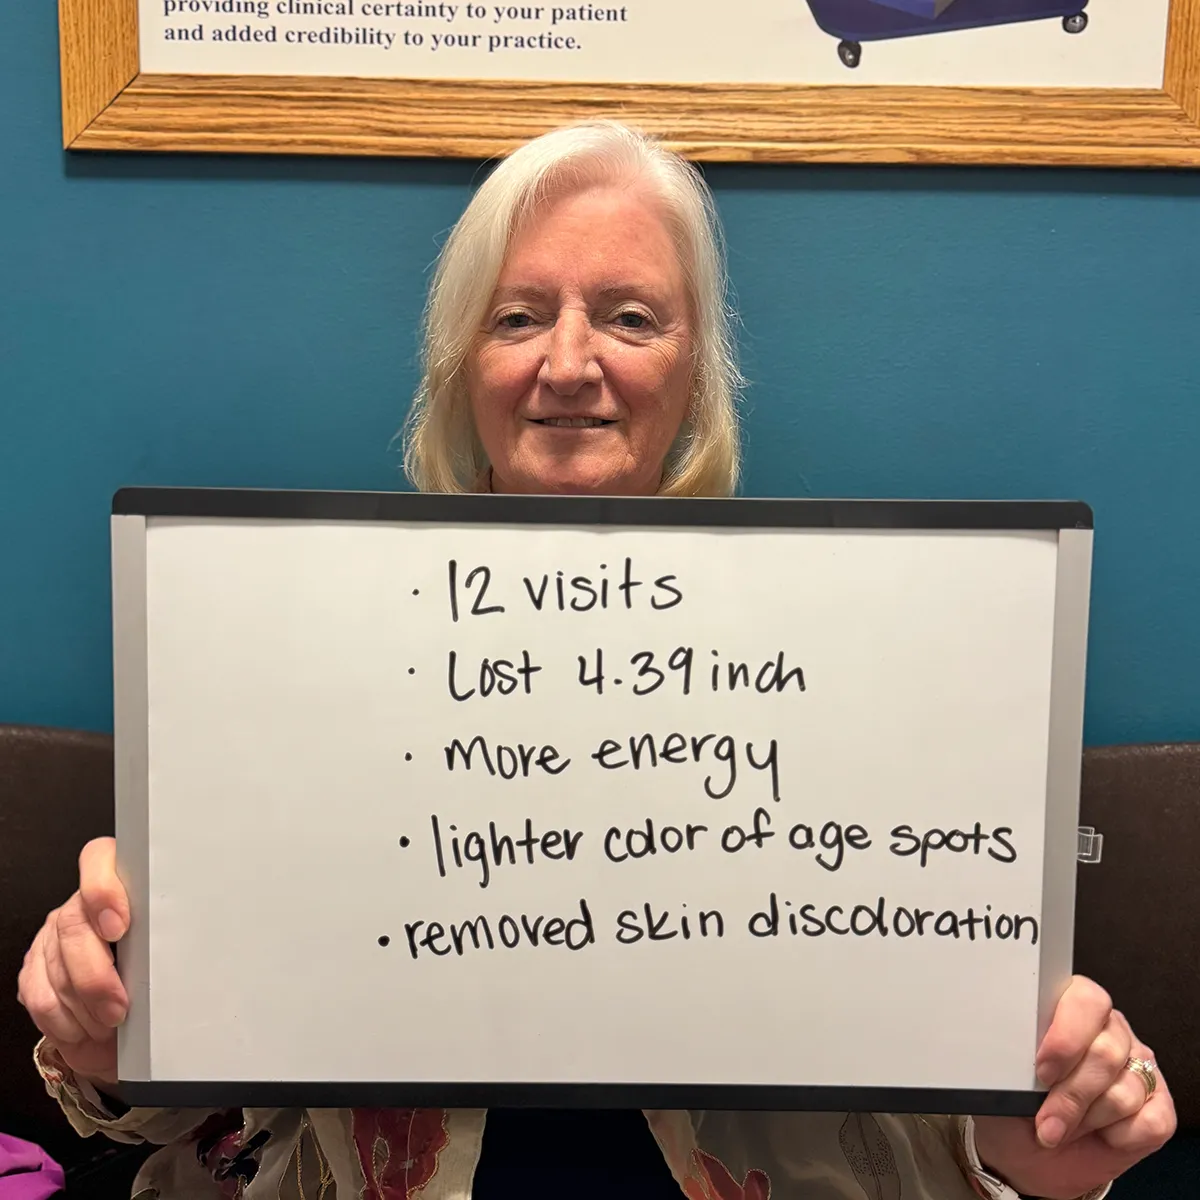 providing clinical certainty to your patient
and added credibility to your practice.
· 12 visits
· Lost 4.39 inch
· more energy
· lighter color of age spots
· removed skin discoloration